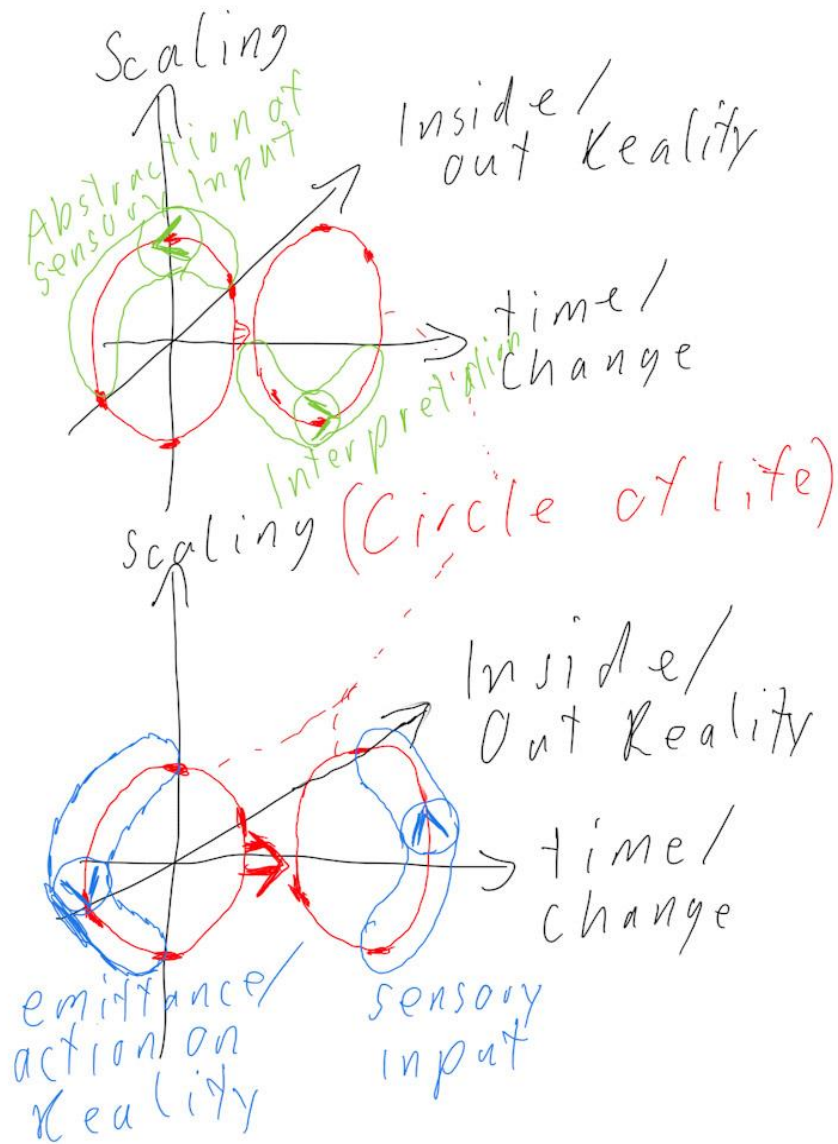 Scaling
Abstraction of
sensory Input
Inside/
out Reality
time/
Change
Interpretation
(Circle of life)
Scaling
Inside/
Out Reality
time/
Change
emittance/
action on
Reality
sensory
input